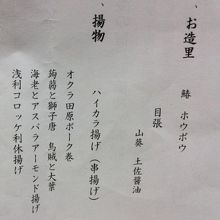 、お造里
鰆 ホウボウ
目張
山葵 土佐醤油
、揚物
ハイカラ揚げ（串揚げ）
オクラ田原ポーク巻
蒟蒻と獅子唐 烏賊と大葉
海老とアスパラアーモンド揚げ
浅利コロッケ利休揚げ